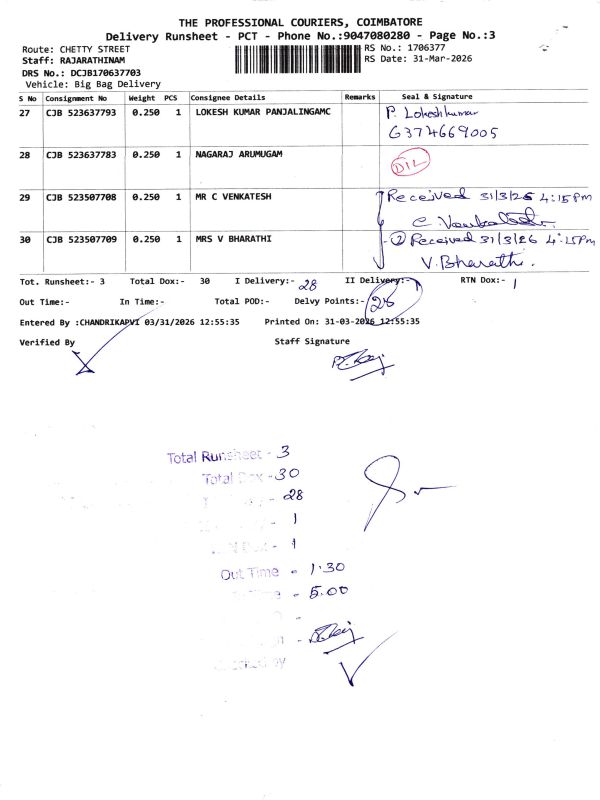 THE PROFESSIONAL COURIERS, COIMBATORE
Delivery Runsheet - PCT - Phone No.:9047080280 - Page No.:3
Route: CHETTY STREET
RS No.: 1706377
Staff: RAJARATHINAM
RS Date: 31-Mar-2026
DRS No.: DCJB170637703
Vehicle: Big Bag Delivery
S No Consignment No Weight PCS Consignee Details Remarks Seal & Signature
27 CJB 523637793 0.250 1 LOKESH KUMAR PANJALINGAMC P. Lokeshkumar
6374669005
28 CJB 523637783 0.250 1 NAGARAJ ARUMUGAM D/L
29 CJB 523507708 0.250 1 MR C VENKATESH Received 31/3/26 4:15PM
30 CJB 523507709 0.250 1 MRS V BHARATHI ② Received 31/3/26 4:15PM
V. Bharathi.
Tot. Runsheet:- 3 Total Dox:- 30 I Delivery:- 28 II Delivery:- 1 RTN Dox:- 1
Out Time:- In Time:- Total POD:- Delvy Points:- 28
Entered By :CHANDRIKAPVI 03/31/2026 12:55:35 Printed On: 31-03-2026 12:55:35
Verified By Staff Signature
Total Runsheet - 3
Total Dox - 30
28
- 1
- 1
Out Time - 1.30
- 5.00